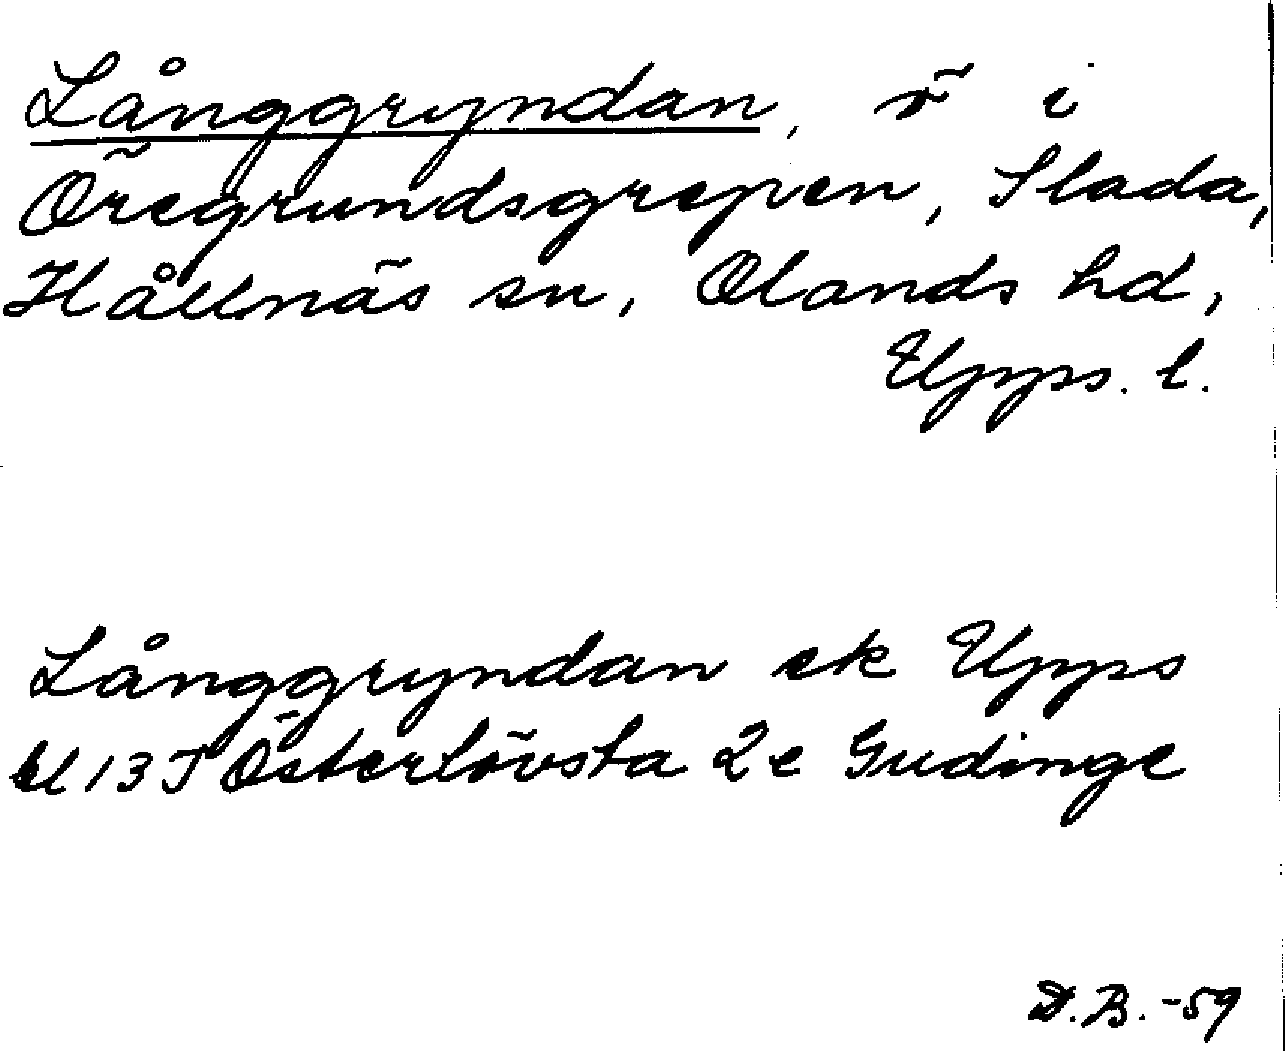 Långgryndan, ö i
Öregrundsgrepen, Slada,
Hållnäs sn, Olands hd,
Upps. l.
Långgryndan ek Upps
bl 13 J Österlövsta 2e Gudinge
D.B. -59